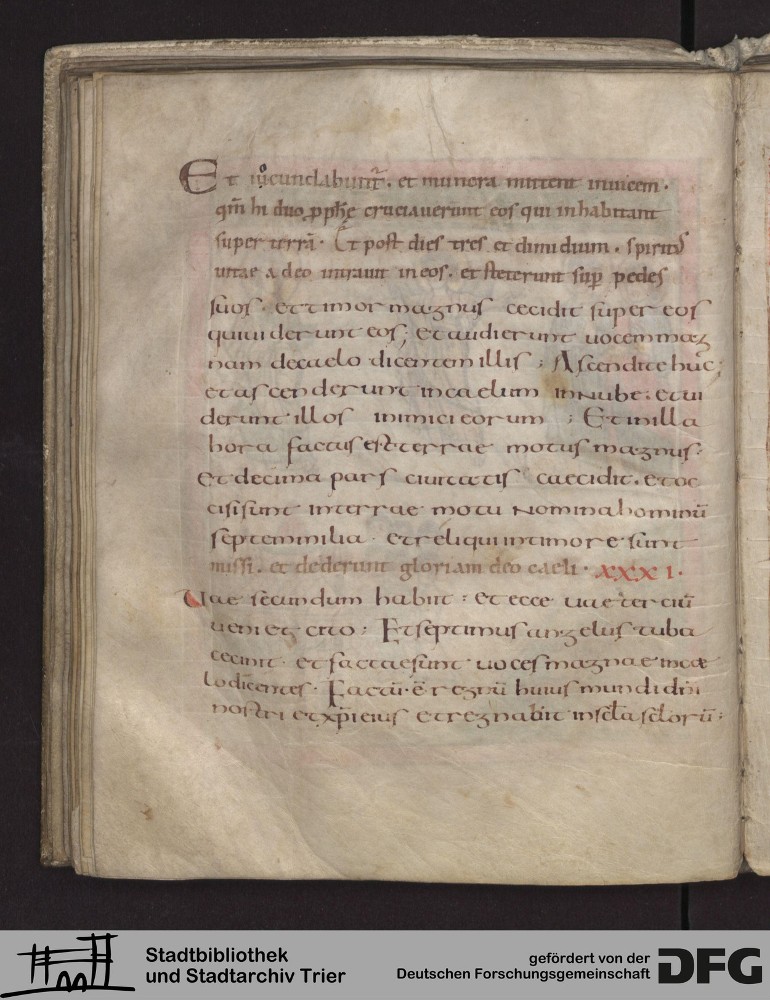 Et iocundabunt̄. et munera mittent inuicem.
qm̄ hi duo ꝓph̄e cruciauerunt eos qui inhabitant
super terrā. Et post dies tres et dimidium. spiritus
uitae a deo intrauit in eos. et steterunt sup̄ pedes
suos. et timor magnus cecidit super eos
qui uiderunt eos; et audierunt uocem mag
nam de caelo dicentem illis; Ascendite huc;
et ascenderunt in caelum in Nube. et ui
derunt illos inimici eorum; Et in illa
hora factus est terrae motus magnus;
Et decima pars ciuitatis caecidit. et oc
cisi sunt in terrae motu Nomina hominū
septem milia. et reliqui in timore sunt
missi. et dederunt gloriam deo caeli. xxxI.
Uae secundum habiit; et ecce uae terciū
ueniet cito; Et septimus angelus tuba
cecinit. et factae sunt uoces magnae in cæ
lo dicentes. Factū. ē regnū huius mundi dn̄i
nostri et xp̄i eius et regnabit in sc̄la sc̄lorū;
Stadtbibliothek
und Stadtarchiv Trier
gefördert von der
Deutschen Forschungsgemeinschaft
DFG